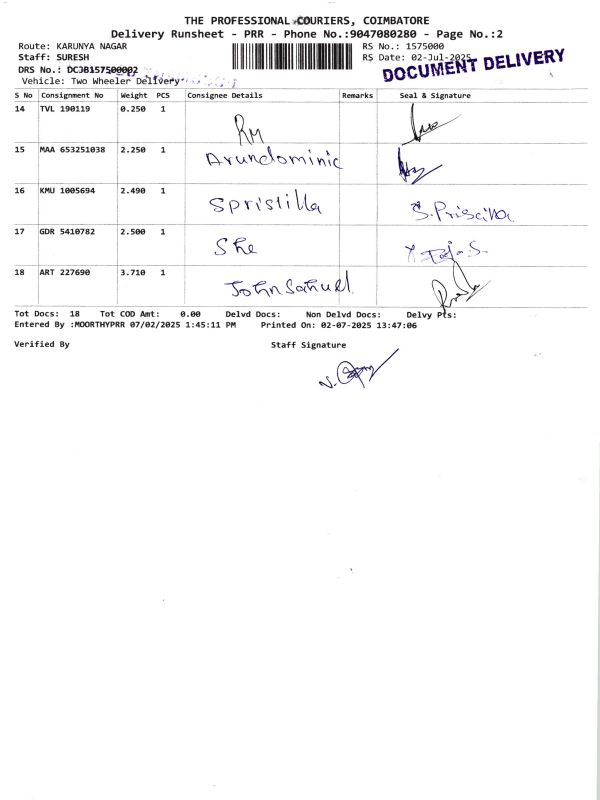 THE PROFESSIONAL COURIERS, COIMBATORE
Delivery Runsheet - PRR - Phone No.:9047080280 - Page No.:2
Route: KARUNYA NAGAR
RS No.: 1575000
Staff: SURESH
RS Date: 02-Jul-2025
DRS No.: DCJB157500002
DOCUMENT DELIVERY
Vehicle: Two Wheeler Delivery
S No Consignment No Weight PCS Consignee Details Remarks Seal & Signature
14 TVL 190119 0.250 1 RM
15 MAA 653251038 2.250 1 Arundominic
16 KMU 1005694 2.490 1 Spristilla S. Priscilla
17 GDR 5410782 2.500 1 She
18 ART 227690 3.710 1 John Sahuel
Tot Docs: 18 Tot COD Amt: 0.00 Delvd Docs: Non Delvd Docs: Delvy Pts:
Entered By :MOORTHYPRR 07/02/2025 1:45:11 PM Printed On: 02-07-2025 13:47:06
Verified By Staff Signature